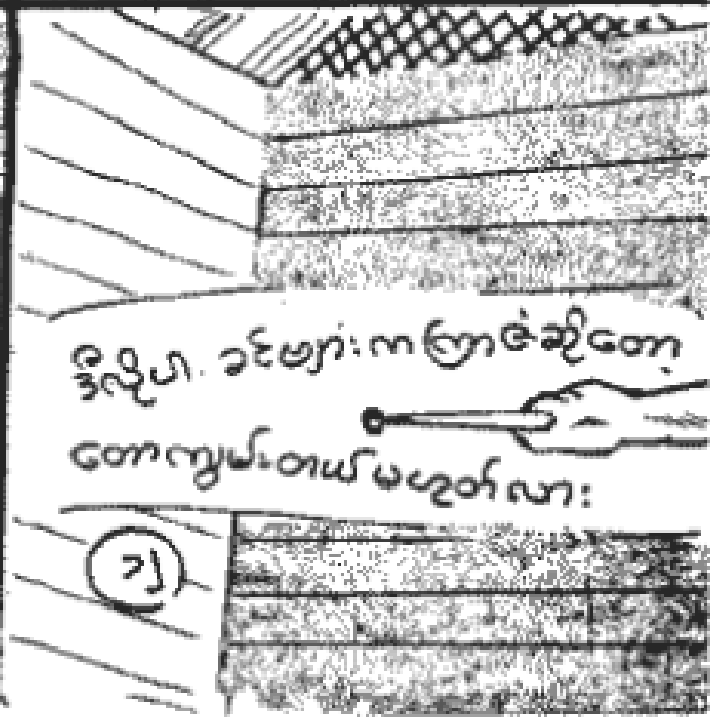 ဒီလိုပါ. ခင်ဗျား က ကြာဇံဆိုတော့
တောကျွမ်းတယ် မဟုတ်လား
၁၂